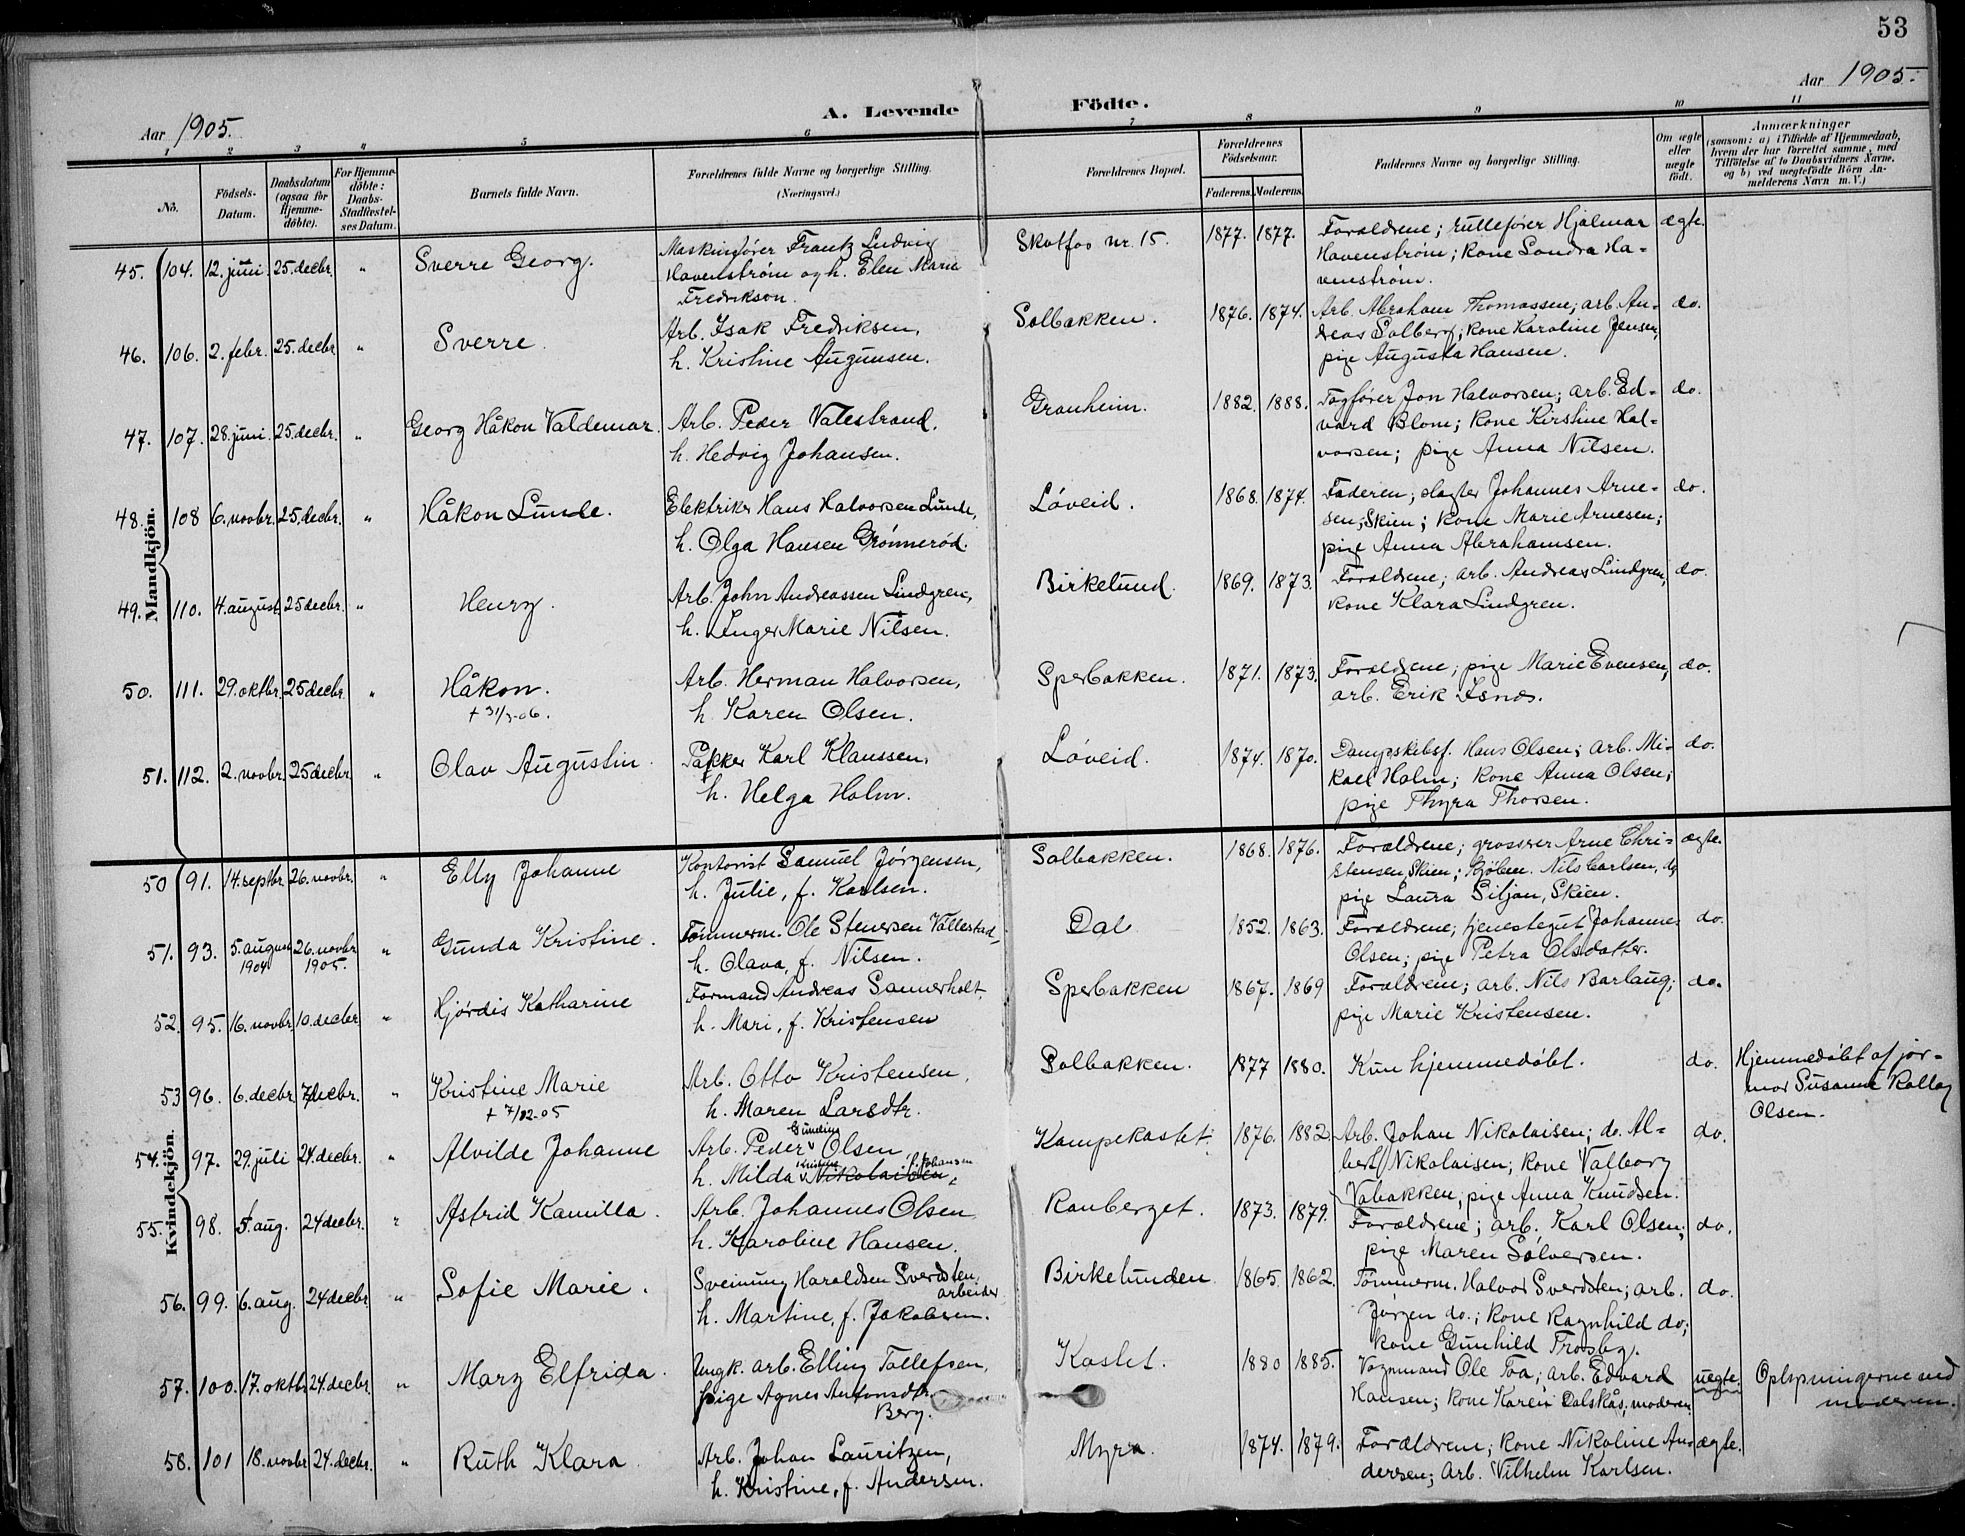 53
Aar 1905.
Aar 1905.
A. Levende Födte.
1 2 3 4 5 6 7 8 9 10 11
No.
Födsels-
Datum.
Daabsdatum
(ogsaa for
Hjemme-
döbte).
For Hjemme-
döbte:
Daabs-
Stadfæstel-
ses Datum.
Barnets fulde Navn.
Forældrenes fulde Navne og borgerlige Stilling.
(Næringsvei.)
Forældrenes Bopæl.
Forældrenes
Födselsaar.
Faderens. Moderens.
Faddernes Navne og borgerlige Stilling.
Om ægte
eller
uægte
födt.
Anmærkninger
(saasom: a) i Tilfælde af Hjemmedaab,
hvem der har forrettet samme, med
Tilföielse af to Daabsvidners Navne,
og b) ved uægtefödte Börn An-
melderens Navn m. V.)
Mandkjön.
45. 104. 12. juni. 25. decbr. " Sverre Georg. Maskinfører Frantz Ludvig Skotfos nr. 15. 1877. 1877. Forældrene; rullefører Hjalmar ægte.
Havenstrøm og h. Elen Marie Havenstrøm; kone Sandra Ha-
Fredrikson. venstrøm.
46. 106. 2. febr. 25. decbr. " Sverre. Arb. Isak Fredriksen, Solbakken. 1876. 1874. Arb. Abraham Thomassen; arb. An- do.
h. Kristine Augunsen. dreas Solberg; kone Karoline Jensen,
pige Augusta Hansen.
47. 107. 28. juni. 25. decbr. " Georg Håkon Valdemar. Arb. Peder Valestrand, Granheim. 1882. 1888. Togfører Jon Halvorsen; arb. Ed- do.
h. Hedvig Johansen. vard Blom; kone Kirstine Hal-
vorsen; pige Anna Nilsen.
48. 108 6. novbr. 25. decbr. " Håkon Lunde. Elektriker Hans Halvorsen Lunde, Løveid. 1868. 1874. Faderen; slagter Johannes Arne- do.
h. Olga Hansen Grønnerød. sen, Skien; kone Marie Arnesen;
pige Anna Abrahamsen.
49. 110. 4. august 25 decbr. " Henry. Arb. John Andreassen Lindgren, Birkelund. 1869. 1873. Forældrene; arb. Andreas Lindgren, do.
h. Inger Marie Nilsen. kone Klara Lindgren.
50. 111. 29. oktbr. 25 decbr. " Håkon. Arb. Herman Halvorsen, Sperbakken. 1871. 1873. Forældrene; pige Marie Evensen, do.
+ 31/3-06. h. Karen Olsen. arb. Erik Isnæs.
51. 112. 2. novbr. 25 decbr. " Olav Augustin. Pakker Karl Klaussen, Løveid. 1874. 1870. Dampskibsf. Hans Olsen; arb. Mi- do.
h. Helga Holm. kael Holm; kone Anna Olsen;
pige Thyra Thorsen.
Kvindekjön.
50 91. 14. septbr. 26. novbr. " Elly Johanne Kontorist Samuel Jørgensen, Solbakken. 1868. 1876. Forældrene; grosserer Arne Chri- ægte.
h. Julie, f. Karlsen. stensen, Skien; kjøbm. Nils Carlsen, do,
pige Laura Siljan, Skien.
51. 93. 5. august 26. novbr. " Gunda Kristine. Tømmerm. Ole Stenersen Vallestad, Dal 1852. 1863. Forældrene; tjenestegut Johannes do.
1904 1905. h. Olava, f. Nilsen. Olsen; pige Petra Olsdatter.
52. 95. 16. novbr. 10. decbr. " Hjørdis Katharine Formand Andreas Sannerholt, Sperbakken 1867. 1869 Forældrene; arb. Nils Barlaug; do.
h. Mari, f. Kristensen pige Marie Kristensen.
53 96. 6. decbr. 7 decbr. " Kristine Marie Arb. Otto Kristensen, Solbakken. 1877 1880. Kun hjemmedøbt. do. Hjemmedøbt af jor-
+ 7/12-05 h. Maren Larsdtr. mor Susanne
Olsen.
54. 97. 29. juli 24. decbr. " Alvilde Johanne Arb. Peder Gunding Olsen, Kampekastet. 1876. 1882 Arb. Johan Nikolaisen; do. Al- do.
h. Milda Kristine Nikolaisen, f. Johansen bert Nikolaisen; kone Valborg
Vabakken, pige Anna Knudsen.
55. 98. 5. aug. 24 decbr. " Astrid Kamilla. Arb. Johannes Olsen Rauberget. 1873. 1879. Forældrene; arb. Karl Olsen; do.
h. Karoline Hansen. pige Maren Solversen.
56. 99. 6. aug. 24 decbr. " Sofie Marie. Sveinung Haraldsen Sverdsten, Birkelunden. 1865. 1862. Tømmerm. Halvor Sverdsten; arb. do.
arbeider
h. Martine, f. Jakobsen. Jørgen do.; kone Ragnhild do;
kone Gunhild Frosby.
57. 100. 17. oktbr. 24. decbr. " Mary Elfrida. Ungk. arb. Elling Tollefsen, Kastet. 1880 1885. Vognmand Ole Toa; arb. Edvard uegte. Oplysningerne ved
pige Agnes Antonsdtr. Hansen; kone Karen Dalskås; moderen moderen.
Berg.
58. 101 18. novbr 24. decbr. " Ruth Klara. Arb. Johan Lauritzen, Myra. 1874. 1879. Forældrene; kone Nikoline An- ægte.
h. Kristine, f. Andersen. dersen; arb. Vilhelm Karlsen.